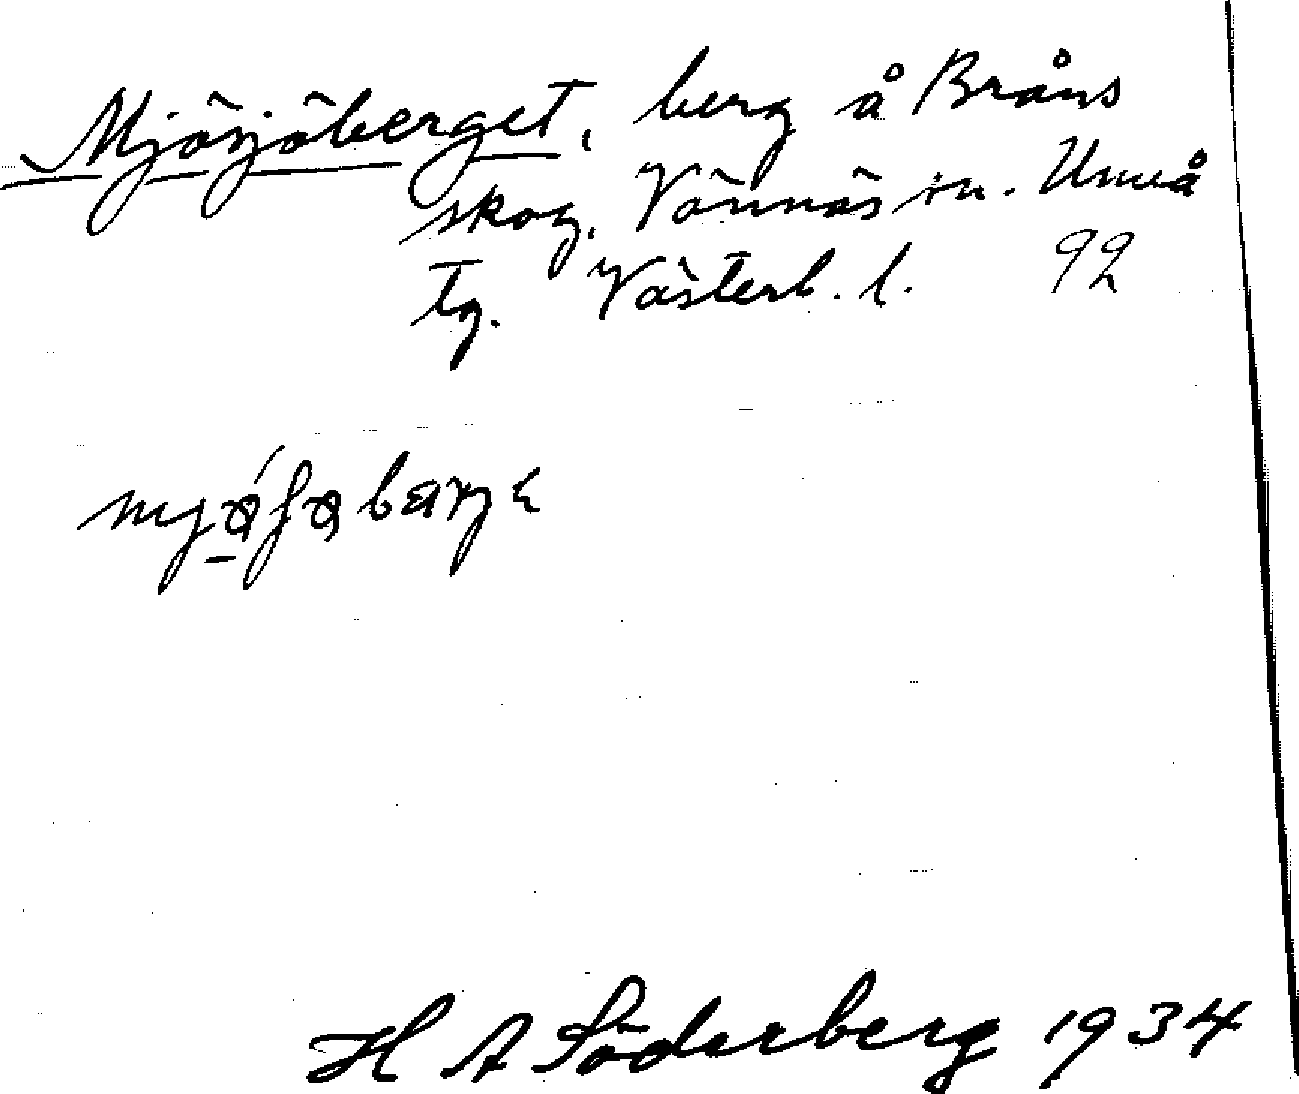 Mjösjöberget, berg å Bråns
skog, Vännäs sn. Umeå
tg. Västerb. l. 92
H A Söderberg 1934